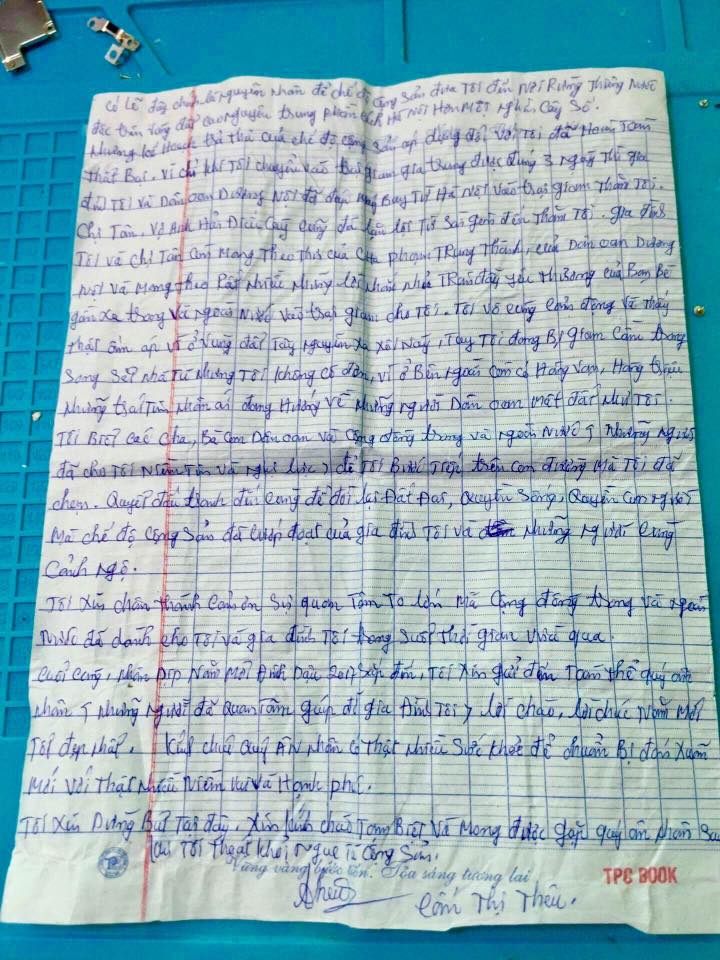 Có lẽ đây chính là nguyên nhân để chế độ Cộng Sản đưa Tôi đến Nơi Rừng Thiêng Nước
độc trên vùng đất cao nguyên trung phần cách Hà Nội Hơn Một Nghìn Cây Số.
Nhưng kế Hoạch trả thù của chế độ cộng sản áp dụng đối với Tôi đã Hoàn Toàn
thất Bại. Vì chỉ khi Tôi chuyển vào trại giam gia trung được đúng 3 ngày Thì gia
đình Tôi và Dân oan Dương Nội đã đáp Máy Bay Từ Hà Nội vào trại giam Thăm Tôi.
Chị Tân, Vợ Anh Hải Điếu Cày cũng đã lặn lội Từ Sài gòn đến Thăm Tôi. gia đình
Tôi và chị Tân Còn Mang Theo Thư của Cha phạm Trung Thành, của Dân oan Dương
Nội và Mang theo Rất Nhiều Những lời nhắn nhủ Tràn đầy yêu thương của Bạn Bè
gần xa trong và ngoài Nước vào trại giam cho Tôi. Tôi vô cùng Cảm động và thấy
thật ấm áp vì ở Vùng đất Tây Nguyên xa xôi Này, Tuy Tôi đang Bị giam Cầm trong
Song Sắt nhà Tù Nhưng Tôi không cô đơn, vì ở Bên Ngoài Còn có Hàng Vạn, Hàng triệu
Những trái Tim Nhân ái đang Hướng về Những người Dân oan Mất đất Như Tôi.
Tôi Biết các cha, Bà Con Dân oan và Cộng đồng trong và ngoài Nước Những Người
đã cho Tôi Niềm Tin và Nghị lực, để Tôi Bước Tiếp trên con đường Mà Tôi đã
chọn. Quyết đấu tranh đến cùng để đòi lại Đất Đai, Quyền Sống, Quyền Con Người
Mà chế độ Cộng Sản đã Cướp đoạt của gia đình Tôi và Những Người Cùng
Cảnh Ngộ.
Tôi Xin chân thành Cảm ơn Sự quan Tâm To lớn Mà Cộng đồng trong Và Ngoài
Nước đã dành cho Tôi và gia đình Tôi trong Suốt Thời gian Vừa qua.
Cuối Cùng, Nhân Dịp Năm Mới Đinh Dậu 2017 Sắp đến, Tôi Xin gửi đến Toàn thể quý ân
Nhân Những Người đã quan tâm giúp đỡ gia Đình Tôi, lời chào, lời chúc Năm Mới
Tốt đẹp Nhất. Kính chúc Quý ÂN Nhân có Thật Nhiều Sức Khỏe để chuẩn Bị đón Xuân
Mới Với Thật Nhiều Niềm Vui Và Hạnh phúc.
Tôi Xin Dừng Bút Tại đây, Xin kính chào Tạm Biệt Và Mong được gặp quý ân Nhân Sau
khi Tôi Thoát khỏi Ngục Tù Cộng Sản.
Vững vàng bước tiến. Tỏa sáng tương lai TPC BOOK
Thêu
Cấn Thị Thêu.